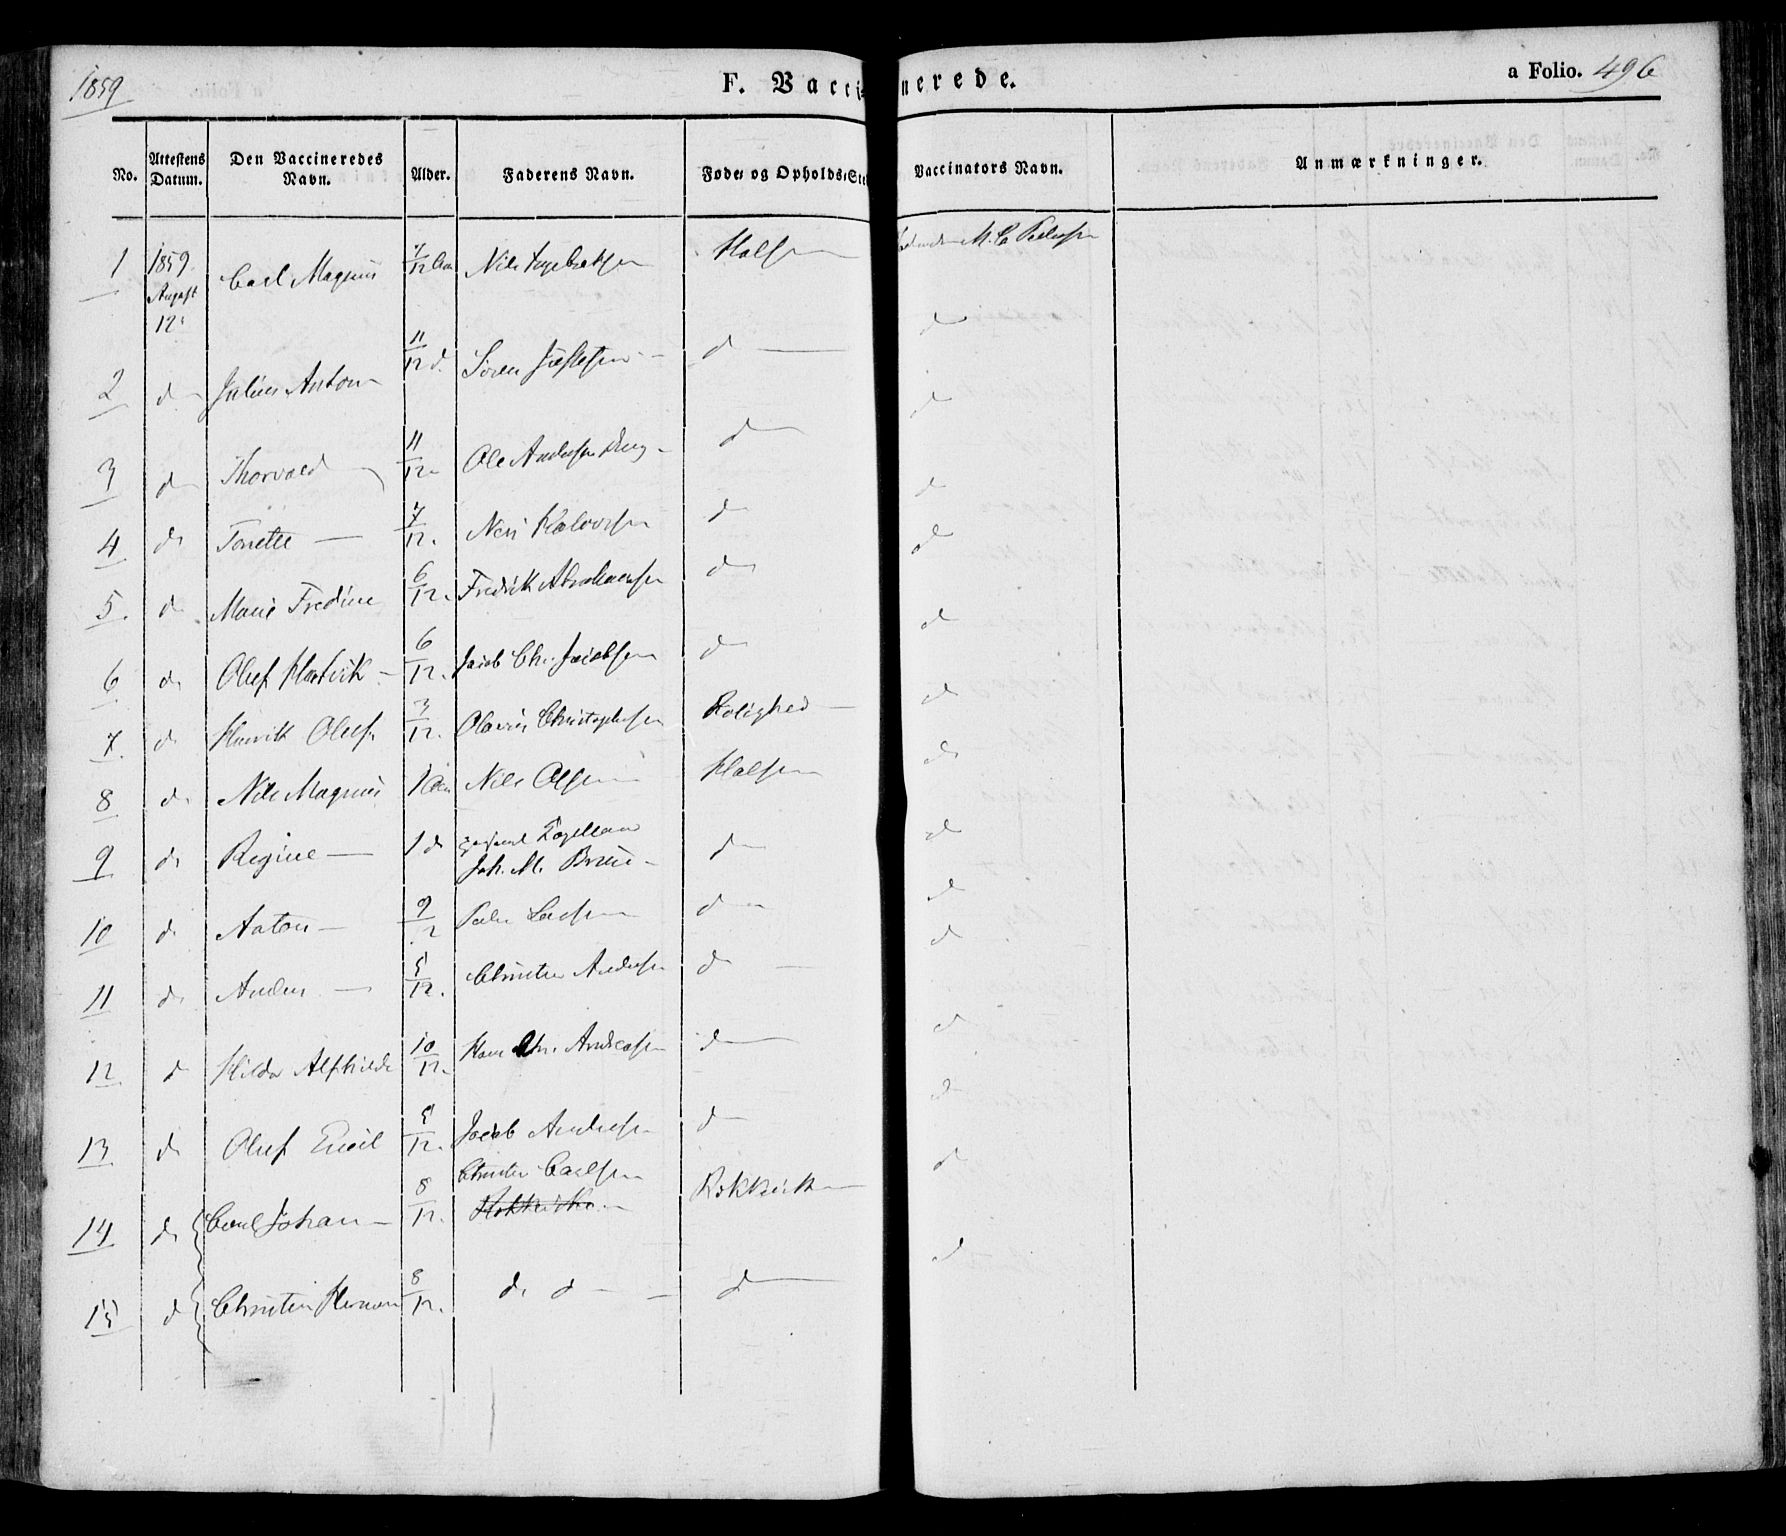 1859 F. Vaccinerede. a Folio. 496
No. Attestens Datum. Den Vaccineredes Navn. Alder. Faderens Navn. Føde- og Opholds-Sted Vaccinators Navn. Anmærkninger.
1 1859 August 12 Carl Magnus 7/12 Aar Nils Halsen M. C. Pedersen
2 d Julius Anton 11/12 d. Søren d d
3 d Thorvald 11/12 Ole Andersen d d
4 do Tonette 7/12. Nils Halvorsen d d
5. d Marie Fredine 6/12. Fredrik Abrahamsen do d
6 do Oluf Hartvik 6/12. Jacob Chr. Jacobsen d d
7. d Henrik Oluf 3/12. Olavus Christophersen Rolighed d
8 do Nils Magnus 1 Aar Nils Olsen Halsen do
9 do Regine 1 do Joh. M. d d
10 d. Anton 9/12 Peder Larsen d d
11 do Anders 5/12. Christen Andersen d d
12 d Hilda Alfhilde 10/12. Hans Chr. Andreasen d d
13 do Oluf Emil 5/12. Jacob Andersen d d
14 do Carl Johan 8/12. Christen Carlsen d
15 d Christen Herman 8/12. do d d d